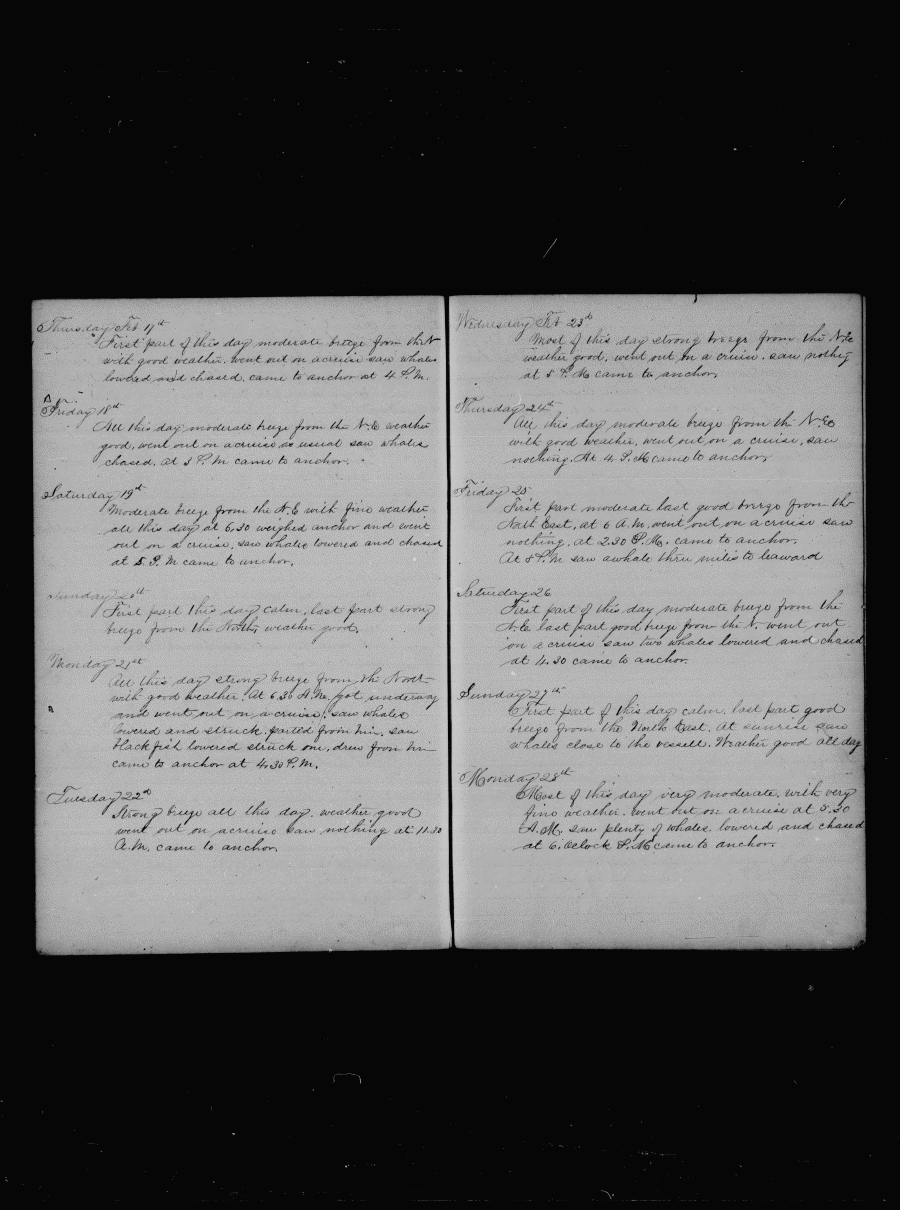 Thursday Feb 17th
First part of this day moderate breeze from the N
with good weather. went out on a cruise saw whales
lowered and chased. came to anchor at 4 P.M.
Friday 18th
All this day moderate breeze from the N.E weather
good. went out on a cruise as usual saw whales
chased. at 5 P.M came to anchor.
Saturday 19th
Moderate breeze from the N.E with fine weather
all this day at 6.30 weighed anchor and went
out on a cruise. saw whales lowered and chased
at 5. P.M came to anchor.
Sunday 20th
First part this day calm. last part strong
breeze from the North, weather good.
Monday 21st
All this day strong breeze from the North
with good weather. At 6.30 A.M. got underway
and went out on a cruise. saw whales
lowered and struck, parted from him. saw
blackfish lowered struck one, drew from him
came to anchor at 4.30 P.M.
Tuesday 22nd
Strong breeze all this day. weather good
went out on a cruise saw nothing at 11.30
A.M. came to anchor.
Wednesday Feb 23d
Most of this day strong breeze from the N.E
weather good. went out on a cruise. saw nothing
at 5 P.M came to anchor.
Thursday 24th
All this day moderate breeze from the N.E
with good weather. went out on a cruise. saw
nothing. At 4 P.M came to anchor.
Friday 25
First part moderate last good breeze from the
North East. at 6 A.M. went out on a cruise saw
nothing. at 2.30 P.M. came to anchor.
At 5 P.M saw a whale three miles to leaward
Saturday 26
First part of this day moderate breeze from the
N.E last part good breeze from the N. went out
on a cruise saw two whales lowered and chased
at 4.30 came to anchor.
Sunday 27th
First part of this day calm. last part good
breeze from the North East. At sunrise saw
whales close to the vessell. Weather good all day
Monday 28th
Most of this day very moderate. with very
fine weather. went out on a cruise at 5.30
A.M. saw plenty of whales lowered and chased
at 6. Oclock P.M came to anchor.